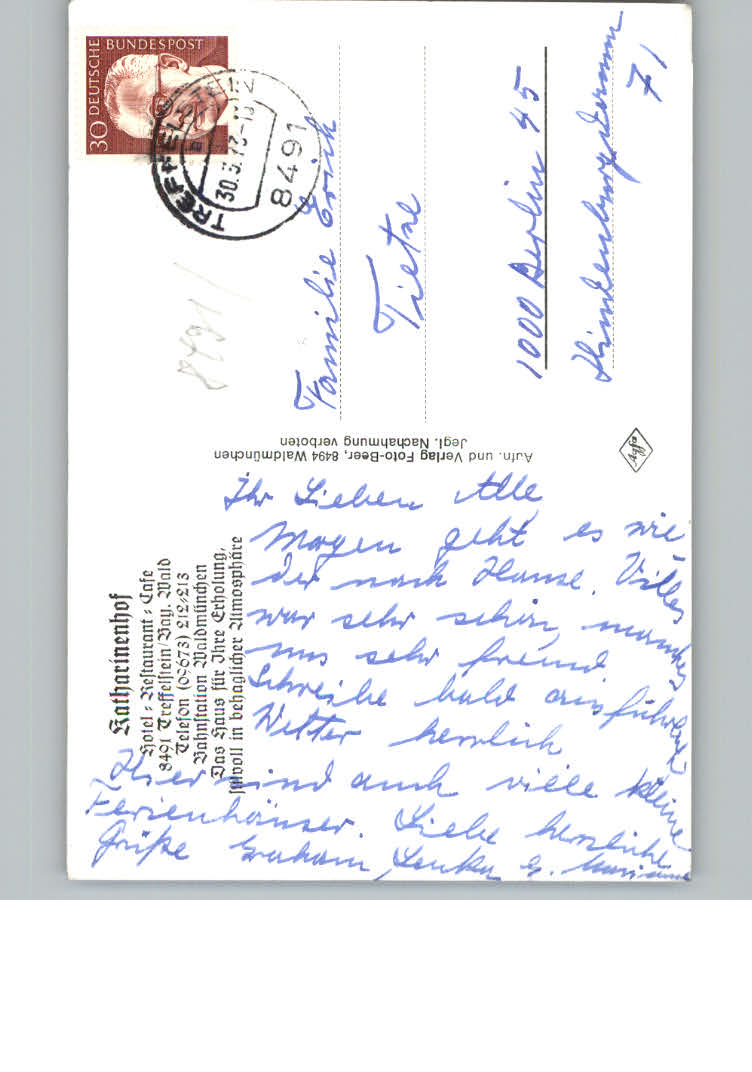 Katharinenhof
Hotel - Restaurant - Cafe
8491 Treffelstein/Bay. Wald
Telefon (09673) 212-213
Bahnstation Waldmünchen
Das Haus für Ihre Erholung,
stilvoll in behaglicher Atmosphäre
Ihr Lieben Alle
Morgen geht es wie
der nach Hause. Villes
war sehr schön, manches
uns sehr fremd
Schreibe bald ausführlich
Wetter herrlich
Hier sind auch viele kleine
Ferienhäuser. Liebe herzliche
Grüße Graham, Lenka u. Marianne
Aufn. und Verlag Foto-Beer, 8494 Waldmünchen
Jegl. Nachahmung verboten
Agfa
DEUTSCHE BUNDESPOST
30
TREFFELSTEIN
8491
8491
Familie Erich
Tietze
1000 Berlin 45
Hindenburgdamm
71